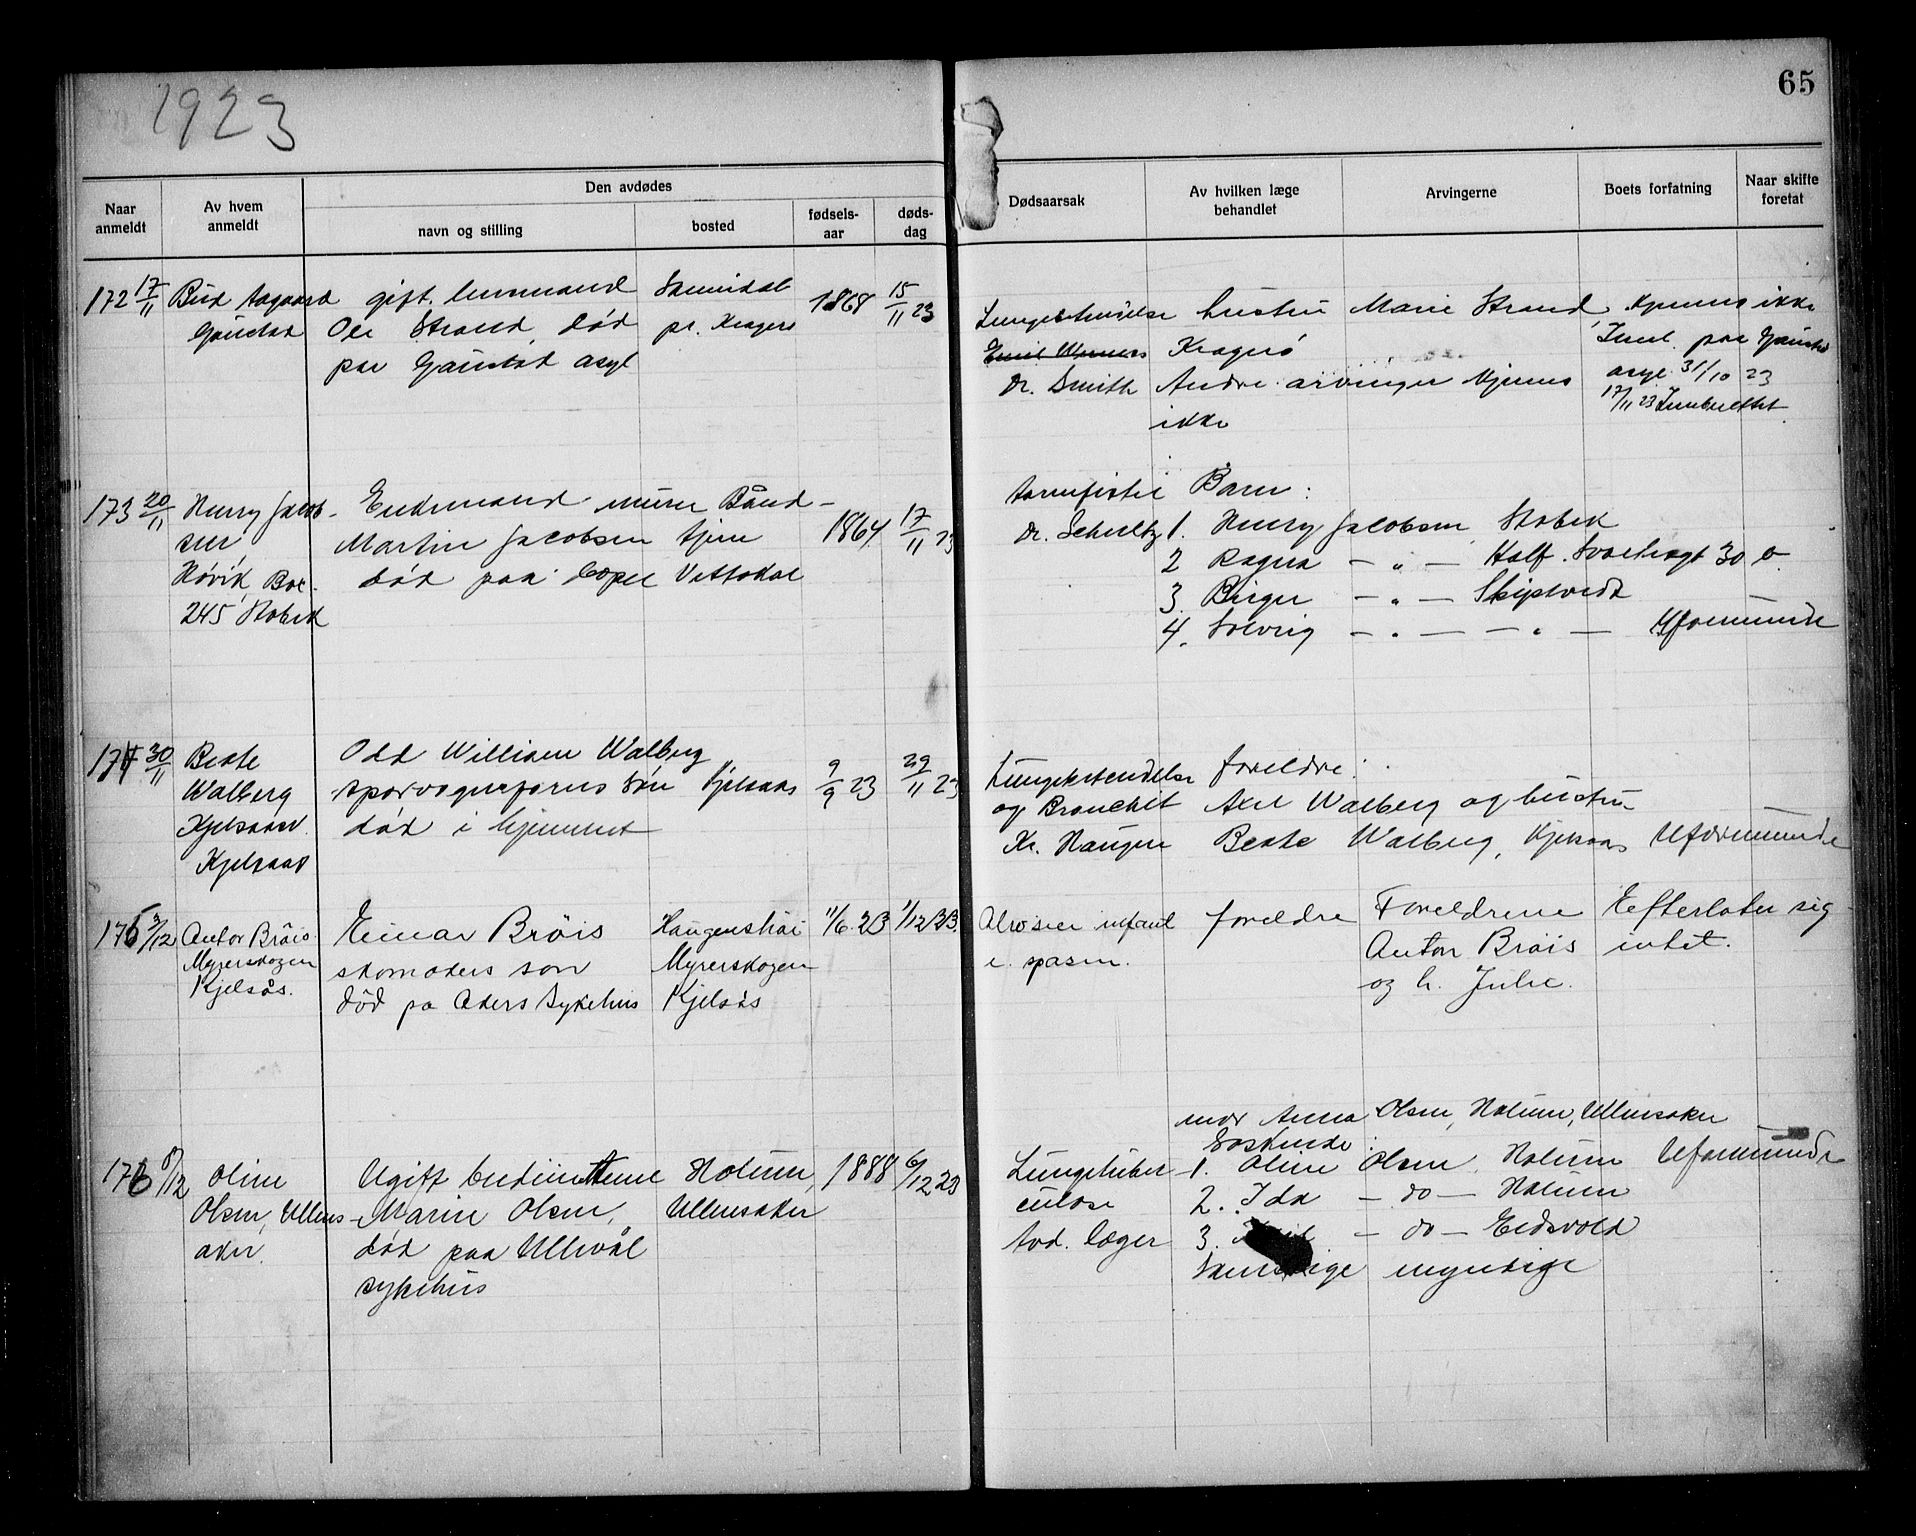 1923
65
Naar anmeldt
Av hvem anmeldt
Den avdødes
navn og stilling
bosted
fødsels-aar
døds-dag
Dødsaarsak
Av hvilken læge behandlet
Arvingerne
Boets forfatning
Naar skifte foretat
172 17/11
Gaustad
gift
Ole Strand, død
paa Gaustad asyl
pr. Kragerø
1868
15/11 23
dr. Smith
hustru Marie Strand,
Kragerø
Andre arvinger kjennes
ikke
kjennes ikke
paa Gaustad
asyl 31/10 23
17/11 23
173 20/11
Henry Jacob-
sen
Høvik, Box
245 Stabek
Enkemand murer
Martin Jacobsen
død paa
1864
17/11 23
dr. Schultz
Barn:
1. Henry Jacobsen, Stabek
2 Ragna — " —
3. Birger — " — Skiptvedt
4. Solveig — " — — " —
Uformuende
174 30/11
Beate
Walberg
Kjelsaas
Odd William Walberg
søn
død i hjemmet
Kjelsaas
9/9 23
29/11 23
Lungebetendelse
og Bronchit
Kr. Haugen
foreldre:
Axel Walberg og hustru
Beate Walberg, Kjelsaas
Uformuende
175 3/12
Anton Brøis
Myrerskogen
Kjelsås.
Einar Brøis
skomakers søn
død på Akers sykehus
Myrerskogen
Kjelsås
11/6.23
1/12 23.
spasm.
foreldre
Foreldrene
Anton Brøis
og h. Julie.
Efterlater sig
intet.
176 8/12
Oline
Olsen, Ullens-
aker.
Ugift
Marie Olsen,
død paa Ullevål
sykehus
Holum,
Ullensaker
1888
6/12 23
Lungetuber
culose
læger
mor Anna Olsen, Holum, Ullensaker
Søskende:
1. Oline Olsen, Holum
2. Ida — do — Holum
3. — do — Eidsvold
myndige
Uformuende